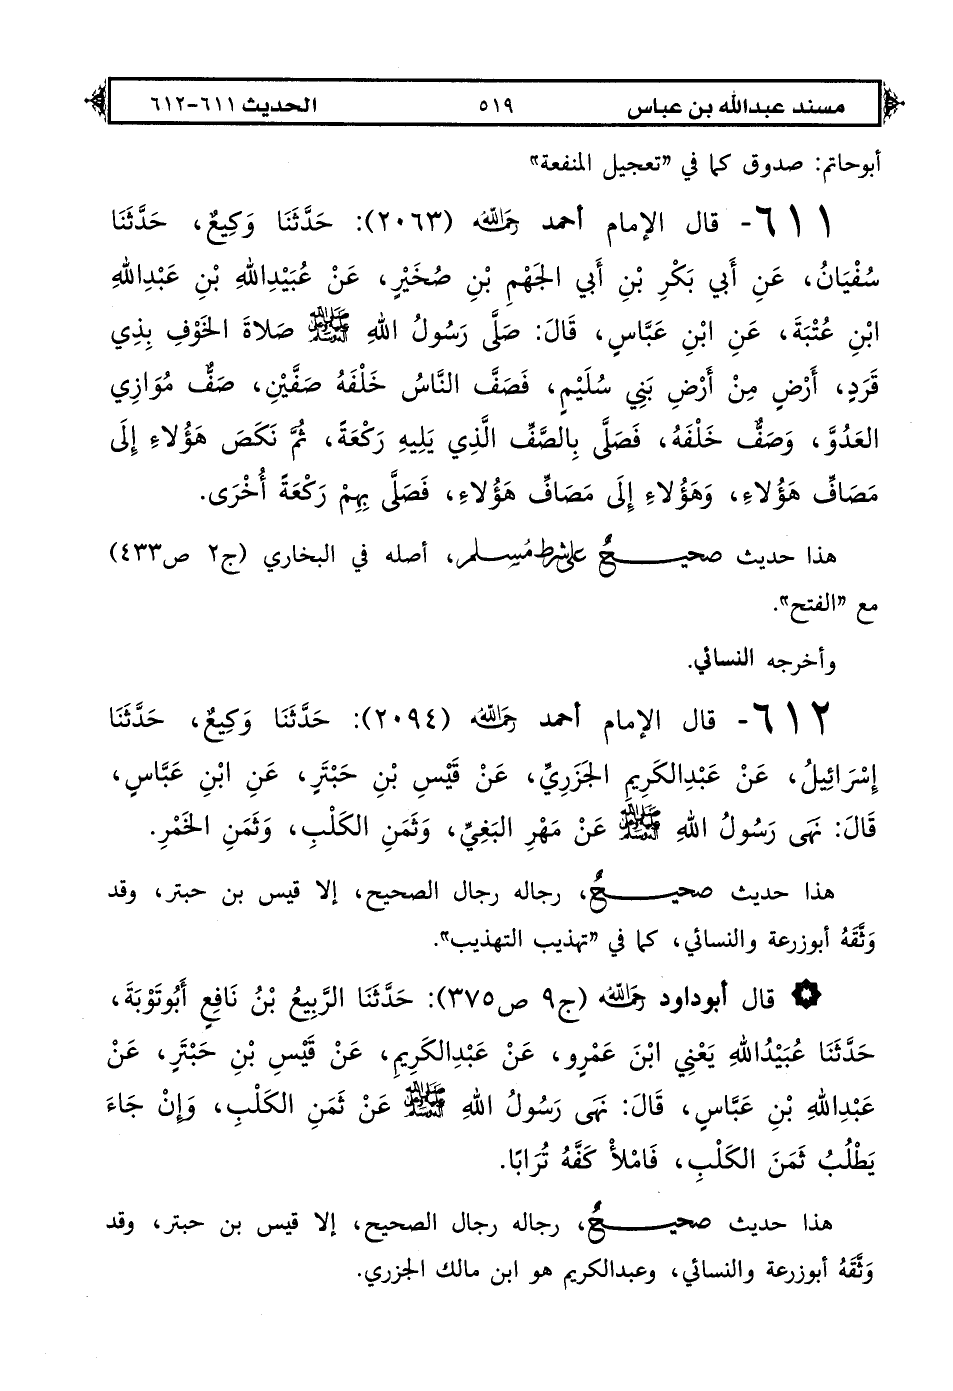 مسند عبدالله بن عباس ٥١٩ الحديث ٦١١-٦١٢
أبوحاتم: صدوق كما في "تعجيل المنفعة"
٦١١- قال الإمام أحمد رحمه الله (٢٠٦٣): حَدَّثَنَا وَكِيعٌ، حَدَّثَنَا
سُفْيَانُ، عَنِ أَبِي بَكْرِ بْنِ أَبِي الجَهْمِ بْنِ صُخَيْرٍ، عَنْ عُبَيْدِاللهِ بْنِ عَبْدِاللهِ
ابْنِ عُتْبَةَ، عَنِ ابْنِ عَبَّاسٍ، قَالَ: صَلَّى رَسُولُ اللهِ ﷺ صَلاةَ الخَوْفِ بِذِي
قَرَدٍ، أَرْضٍ مِنْ أَرْضِ بَنِي سُلَيْمٍ، فَصَفَّ النَّاسُ خَلْفَهُ صَفَّيْنِ، صَفٌّ مُوَازِي
العَدُوَّ، وَصَفٌّ خَلْفَهُ، فَصَلَّى بِالصَّفِّ الَّذِي يَلِيهِ رَكْعَةً، ثُمَّ نَكَصَ هَؤُلاءِ إِلَى
مَصَافِّ هَؤُلاءِ، وَهَؤُلاءِ إِلَى مَصَافِّ هَؤُلاءِ، فَصَلَّى بِهِمْ رَكْعَةً أُخْرَى.
هذا حديث صحيحٌ على شرط مُسلم، أصله في البخاري (ج٢ ص٤٣٣)
مع "الفتح".
وأخرجه النسائي.
٦١٢- قال الإمام أحمد رحمه الله (٢٠٩٤): حَدَّثَنَا وَكِيعٌ، حَدَّثَنَا
إِسْرَائِيلُ، عَنْ عَبْدِالكَرِيمِ الجَزَرِيِّ، عَنْ قَيْسِ بْنِ حَبْتَرٍ، عَنِ ابْنِ عَبَّاسٍ،
قَالَ: نَهَى رَسُولُ اللهِ ﷺ عَنْ مَهْرِ البَغِيِّ، وَثَمَنِ الكَلْبِ، وَثَمَنِ الخَمْرِ.
هذا حديث صحيحٌ، رجاله رجال الصحيح، إلا قيس بن حبتر، وقد
وَثَّقَهُ أبوزرعة والنسائي، كما في "تهذيب التهذيب".
قال أبوداود رحمه الله (ج٩ ص٣٧٥): حَدَّثَنَا الرَّبِيعُ بْنُ نَافِعٍ أَبُوتَوْبَةَ،
حَدَّثَنَا عُبَيْدُاللهِ يَعْنِي ابْنَ عَمْرٍو، عَنْ عَبْدِالكَرِيمِ، عَنْ قَيْسِ بْنِ حَبْتَرٍ، عَنْ
عَبْدِاللهِ بْنِ عَبَّاسٍ، قَالَ: نَهَى رَسُولُ اللهِ ﷺ عَنْ ثَمَنِ الكَلْبِ، وَإِنْ جَاءَ
يَطْلُبُ ثَمَنَ الكَلْبِ، فَامْلأْ كَفَّهُ تُرَابًا.
هذا حديث صحيحٌ، رجاله رجال الصحيح، إلا قيس بن حبتر، وقد
وَثَّقَهُ أبوزرعة والنسائي، وعبدالكريم هو ابن مالك الجزري.